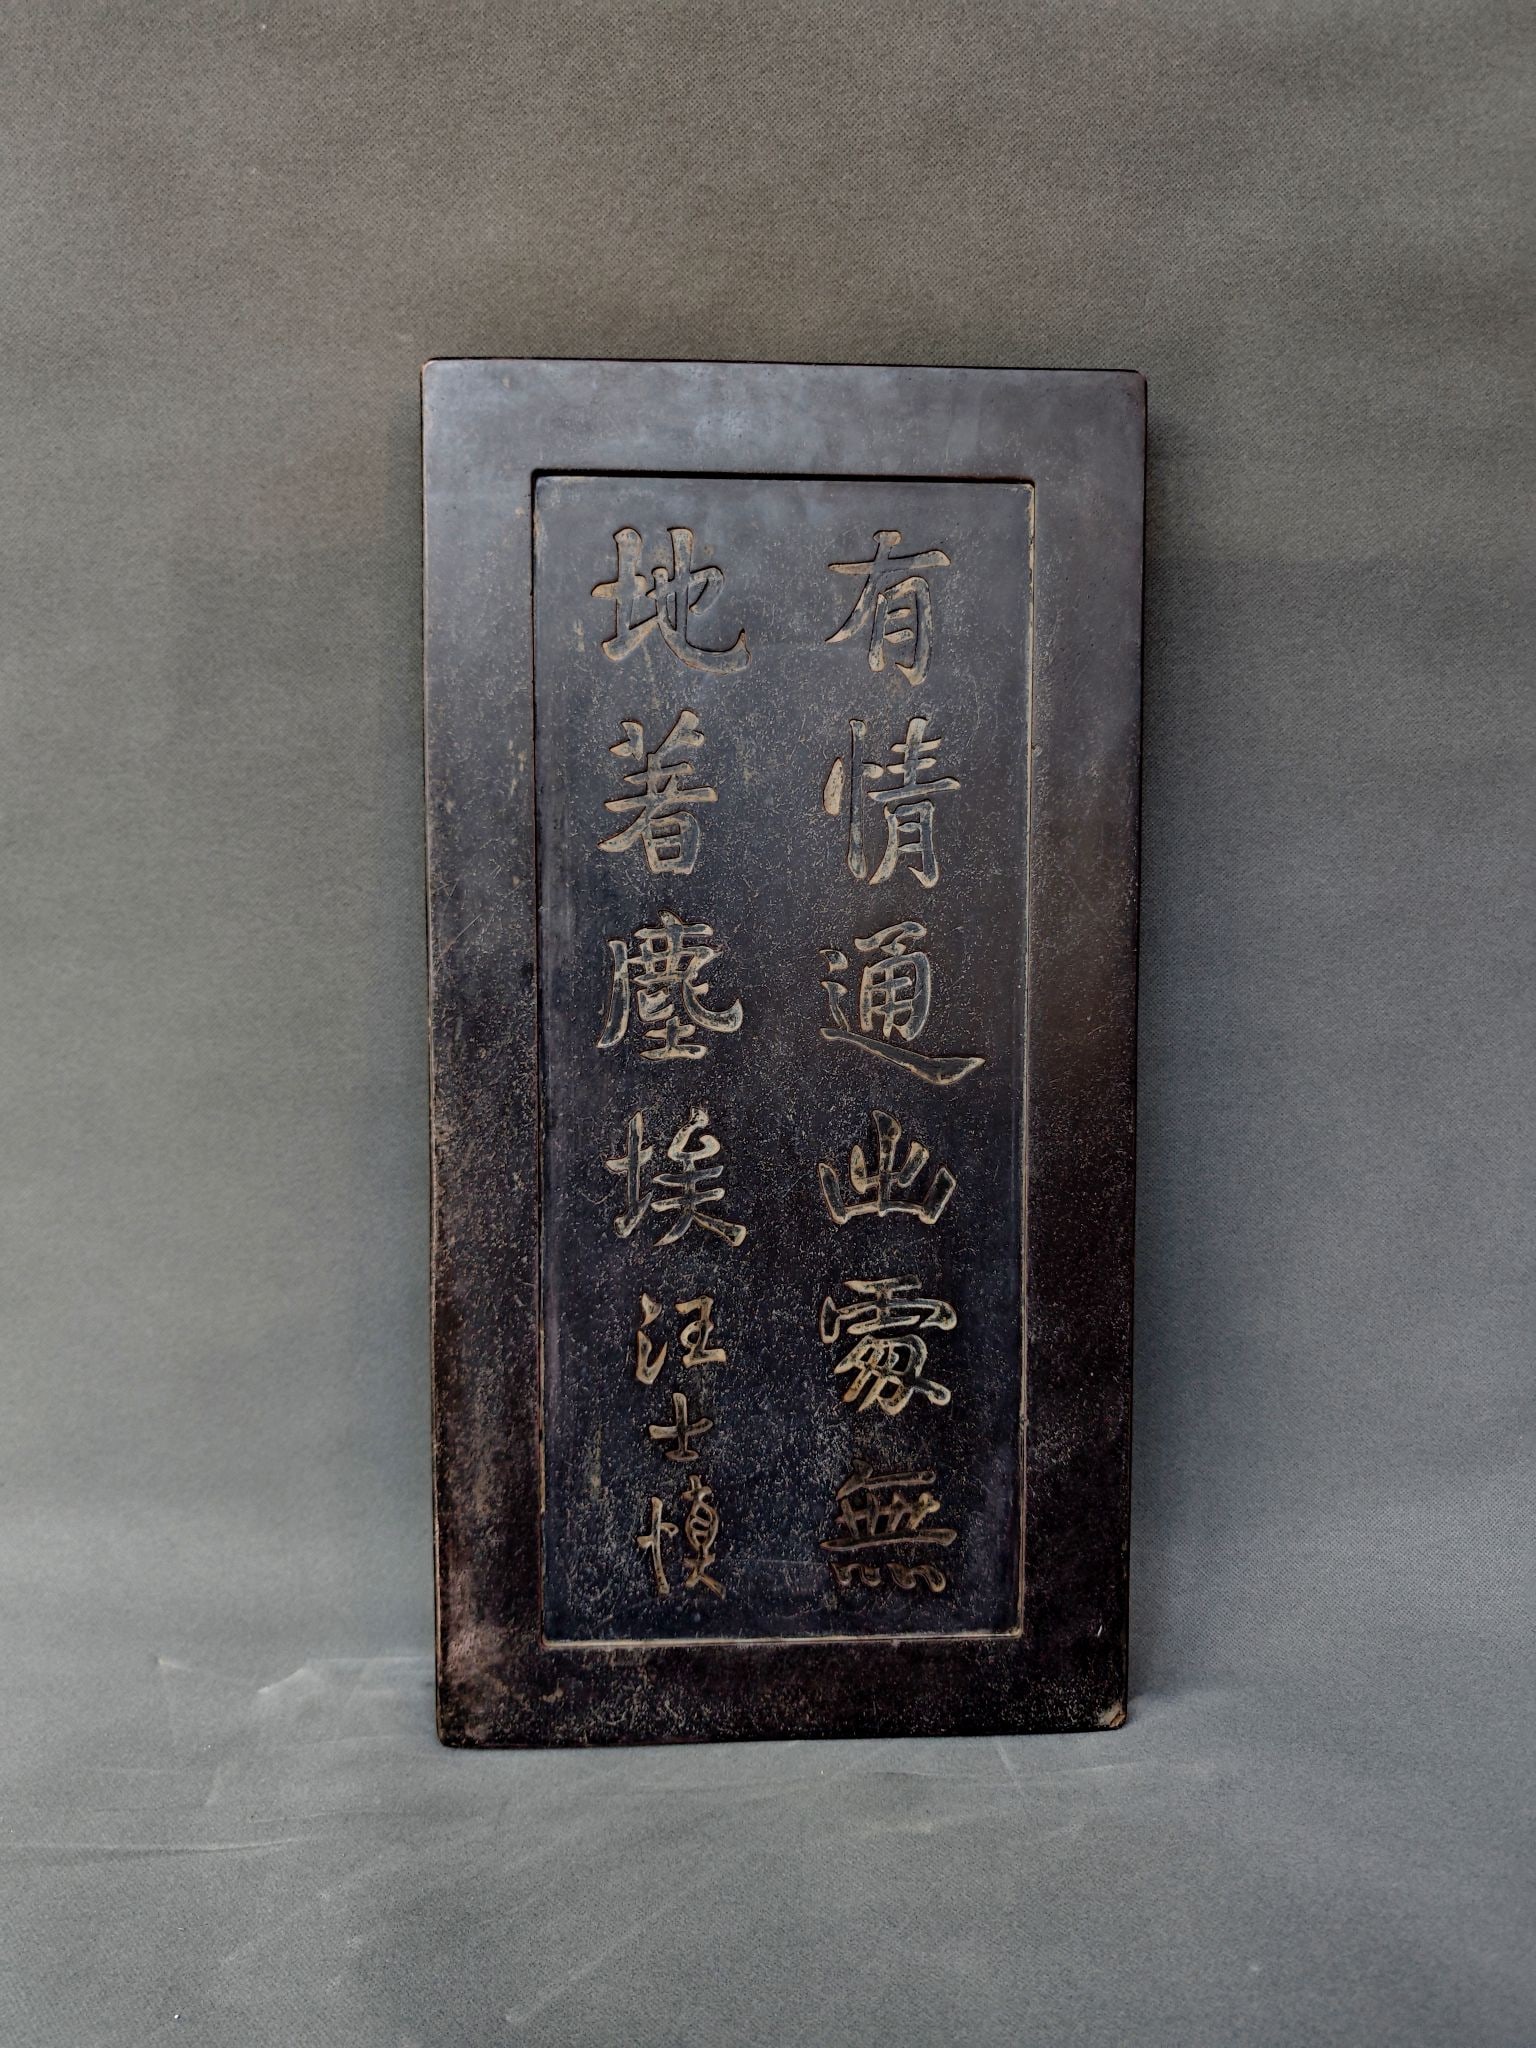 有情通幽處無
地著塵埃汪士慎